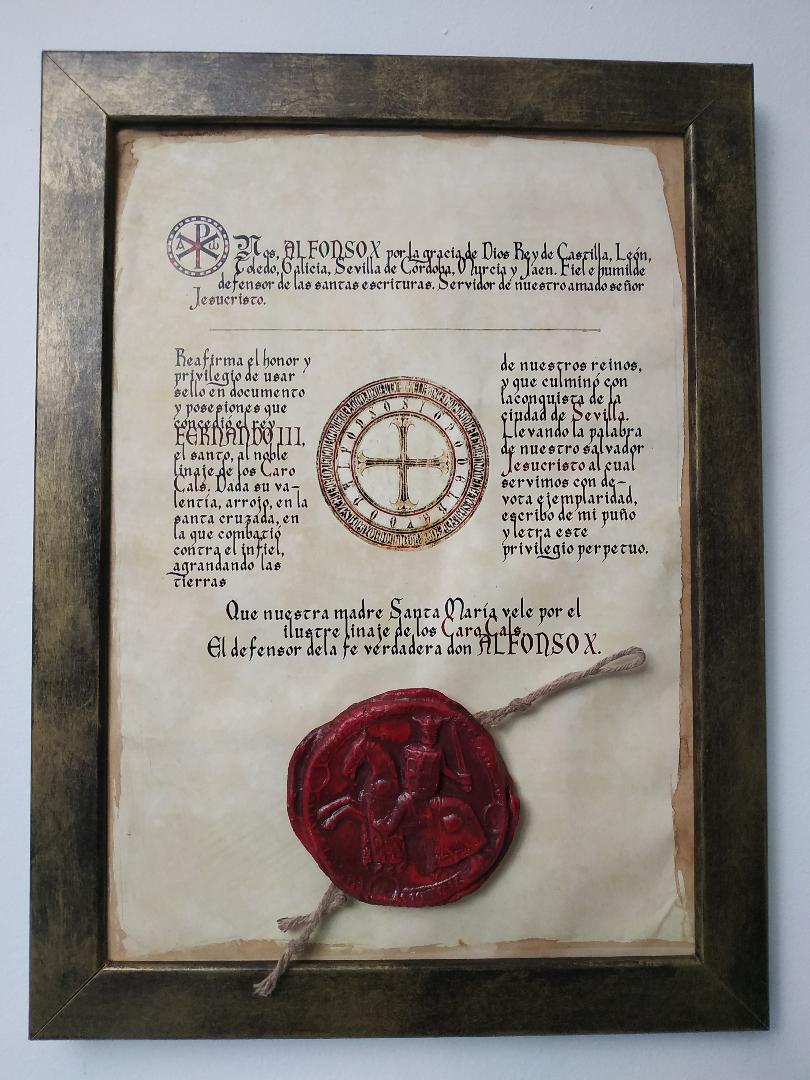 Nos, ALFONSO X por la gracia de Dios Rey de Castilla, León,
Toledo, Galicia, Sevilla de Córdoba, Murcia y Jaen. Fiel e humilde
defensor de las santas escrituras. Servidor de nuestro amado señor
Jesucristo.
Reafirma el honor y
privilegio de usar
sello en documento
y posesiones que
concedió el rey
FERNANDO III,
el santo, al noble
linaje de los Caro
Cals. Dada su va-
lentía, arrojo, en la
santa cruzada, en
la que combatió
contra el infiel,
agrandando las
tierras
de nuestros reinos,
y que culminó con
la conquista de la
ciudad de Sevilla.
Llevando la palabra
de nuestro salvador
Jesucristo al cual
servimos con de-
vota ejemplaridad,
escribo de mi puño
y letra este
privilegio perpetuo.
Que nuestra madre Santa María vele por el
ilustre linaje de los Caro Cals.
El defensor de la fe verdadera don ALFONSO X.